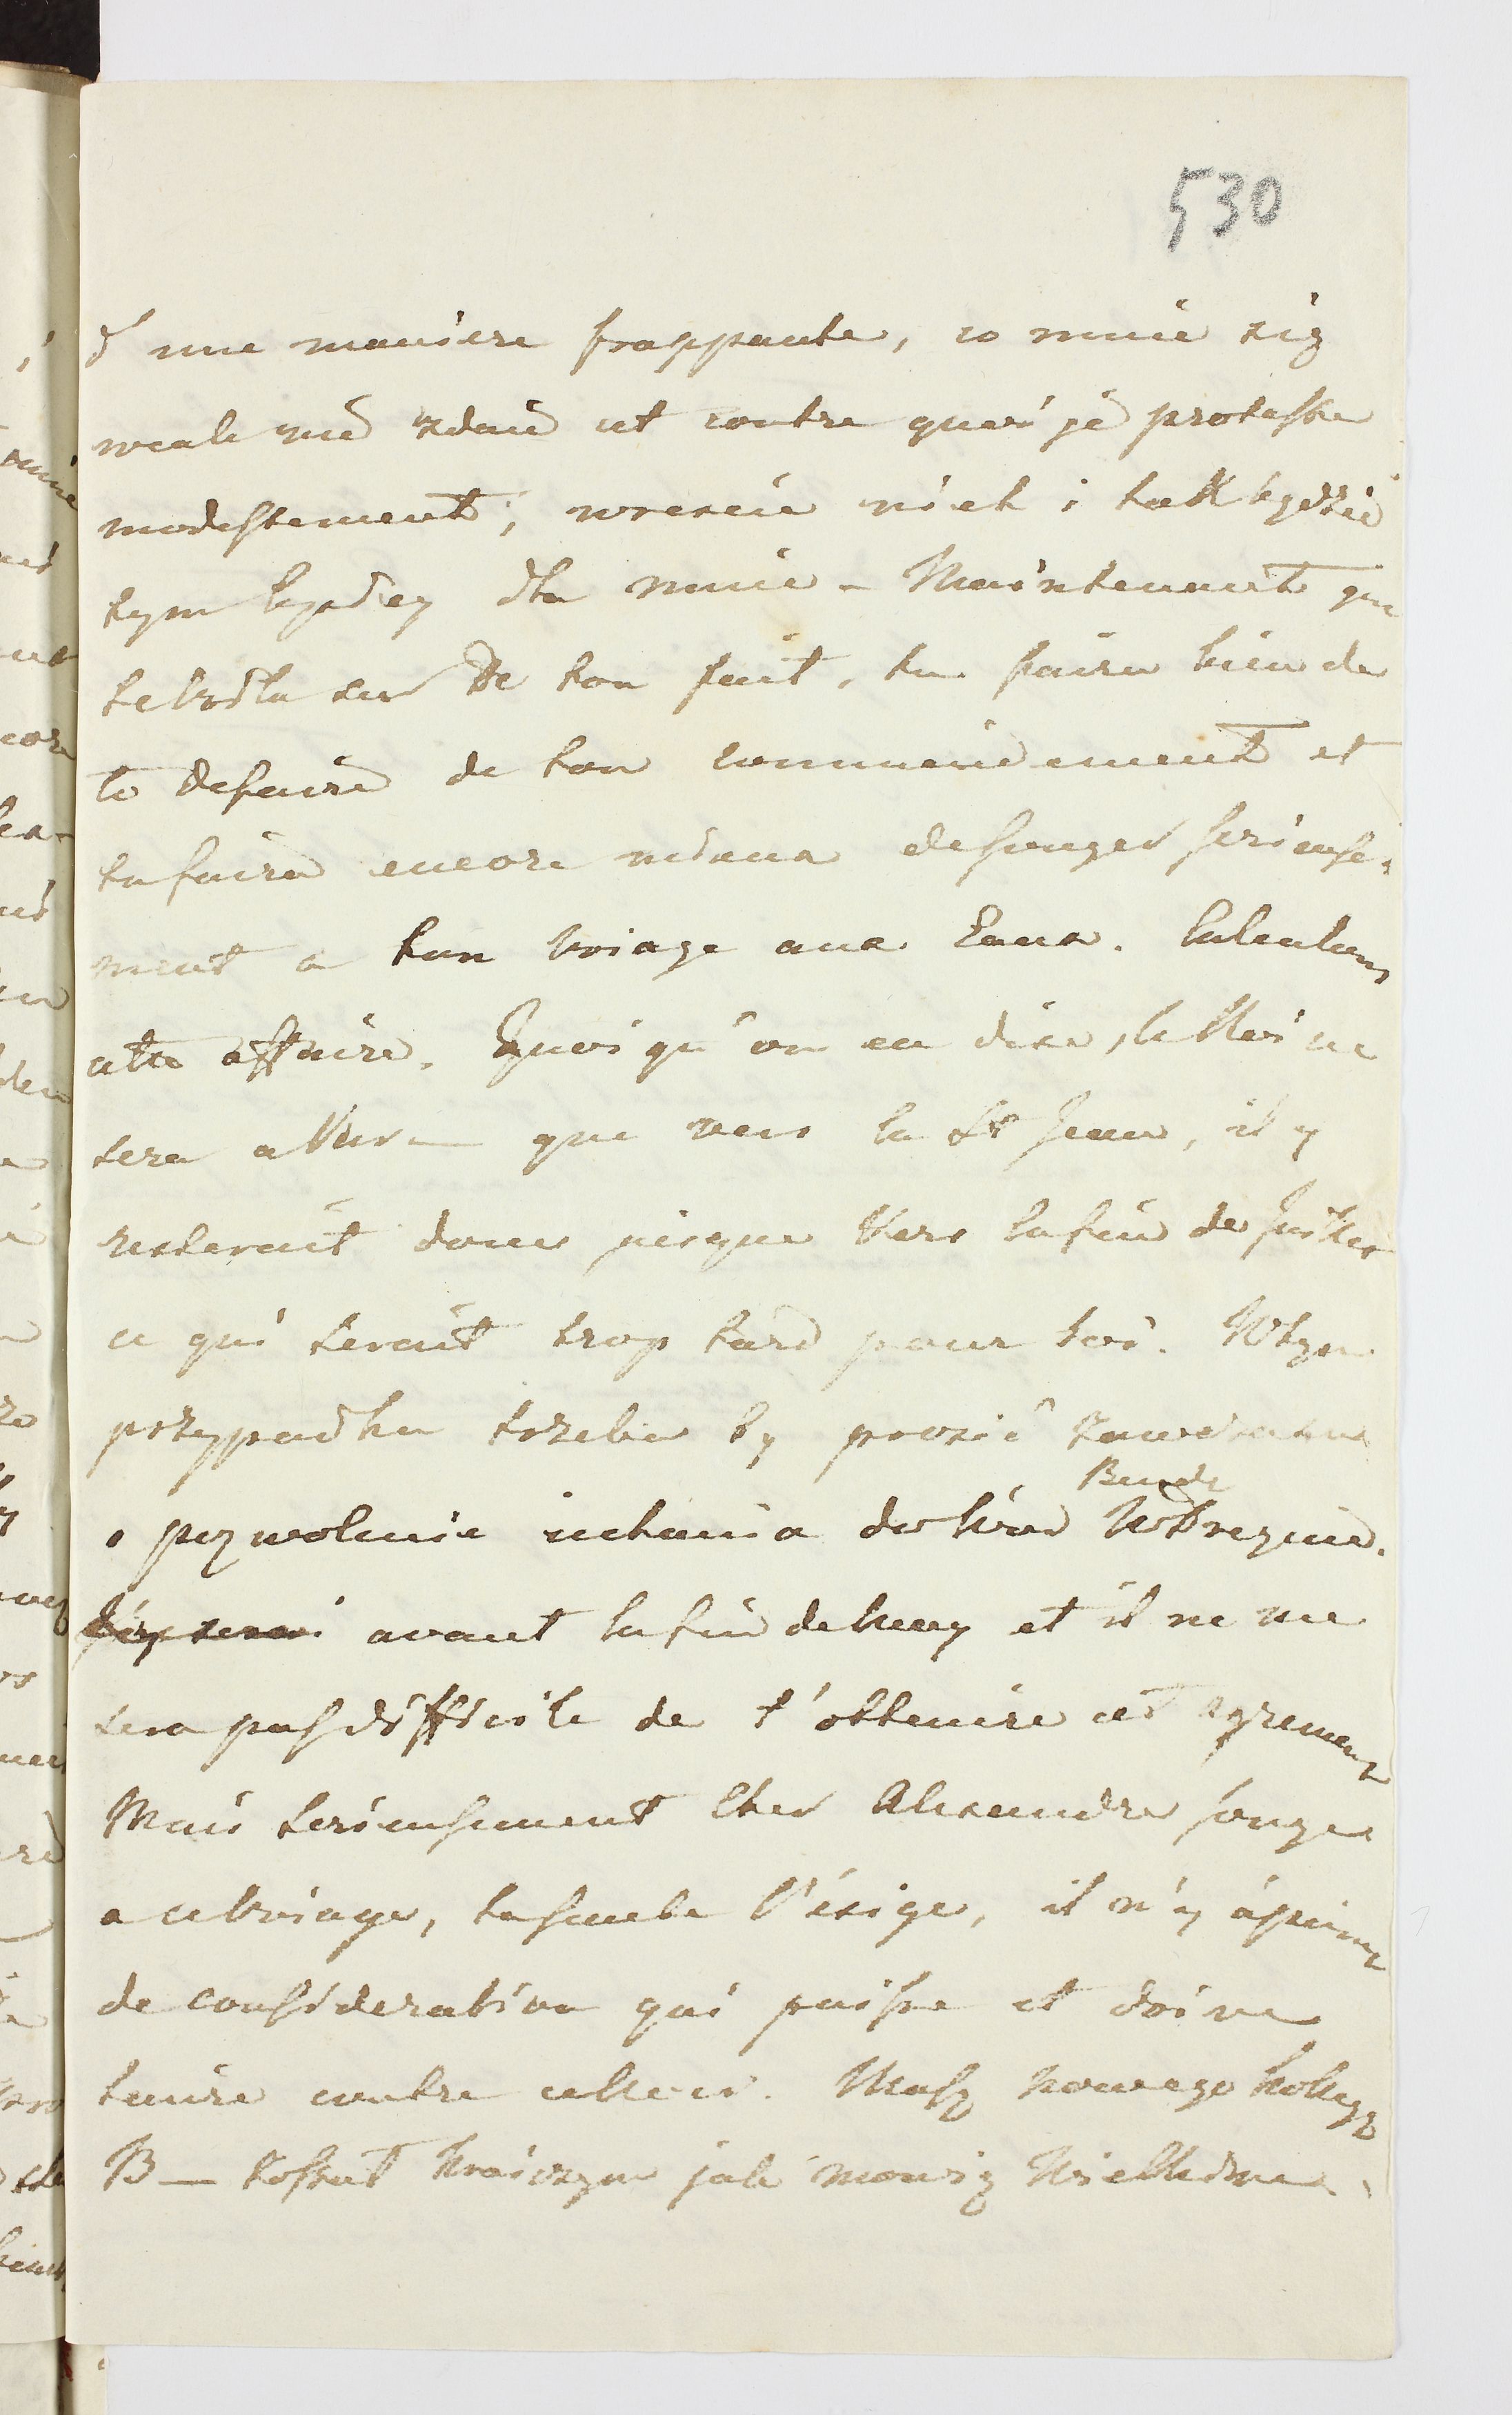 530
d'une maniere frappante, co mnie się
wcale nie zdaie et contre quoi je proteste
modestement; wreszcie niech i tak będzie
tym lepiey dla mnie – Maintenant que
te voila sur de ton fait, tu faira bien de
te defaire de ton commendement et
tu faira encore mieux de songer serieuse-
ment a ton voiage aux Eaux. Calculons
cette affaire. Quoi qu'on en dise, le Roi ne
sera a Vars– que vers la St Jean, il y
resterait donc jusque vers la fin de Juillet
ce qui serait trop tard pour toi. W tym
przypadku trzeba by prosić zawczasu
Bende
o pozwolenie iechania do wód W Brzezinie.
J'y serai avant la fin de may et il ne me
sera pas difficile de t'obtenire cet agrement
Mais serieusement Cher Alexandre songe
a ce voiage, ta santé l'éxige, il n'y a point
de consideration qui puisse et doive
tenire contre celle-ci. Masz nowego kollegę
B– został Kraiczym jak mowią Wielkim